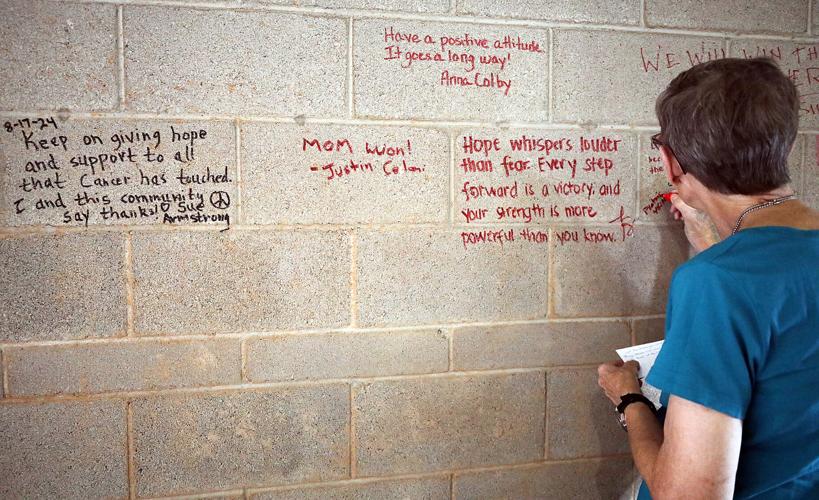 Have a positive attitude.
It goes a long way!
Anna Colby
WE WILL WIN TH
8-17-24
Keep on giving hope
and support to all
that Cancer has touched.
I and this community
say thanks! Sue
Armstrong
MOM WON!
- Justin
HOPE whispers louder
than fear. Every step
forward is a victory, and
your strength is more
powerful than you know.